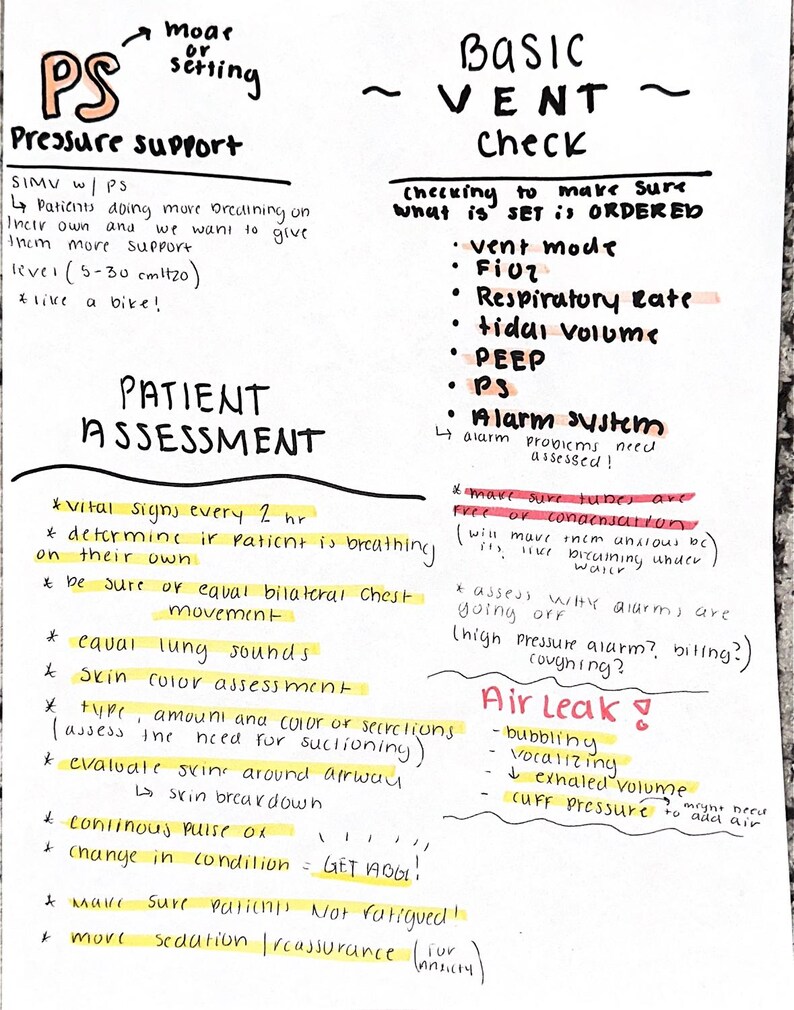 PS → mode
or
setting
Pressure support
SIMV w/ PS
↳ Patients doing more breathing on
their own and we want to give
them more support
level (5-30 cmH20)
* like a bike!
PATIENT
ASSESSMENT
* vital signs every 2 hr
* determine if patient is breathing
on their own
* be sure of equal bilateral chest
movement
* equal lung sounds
* skin color assessment
* type, amount and color of secretions
(assess the need for suctioning)
* evaluate skin around airway
↳ skin breakdown
* continous pulse ox
* change in condition = GET ABG!
* Make sure patients Not fatigued!
* more sedation / reassurance (for
anxiety)
BASIC
~ VENT ~
check
checking to make sure
what is SET is ORDERED
• vent mode
• FiO2
• Respiratory Rate
• tidal volume
• PEEP
• PS
• Alarm system
↳ alarm problems need
assessed!
* make sure tubes are
free of condensation
(will make them anxious bc
its like breathing under
water)
* assess WHY alarms are
going off
(high pressure alarm? biting?)
coughing?
Air Leak!
- bubbling
- vocalizing
- ↓ exhaled volume
- cuff pressure → might need
to add air